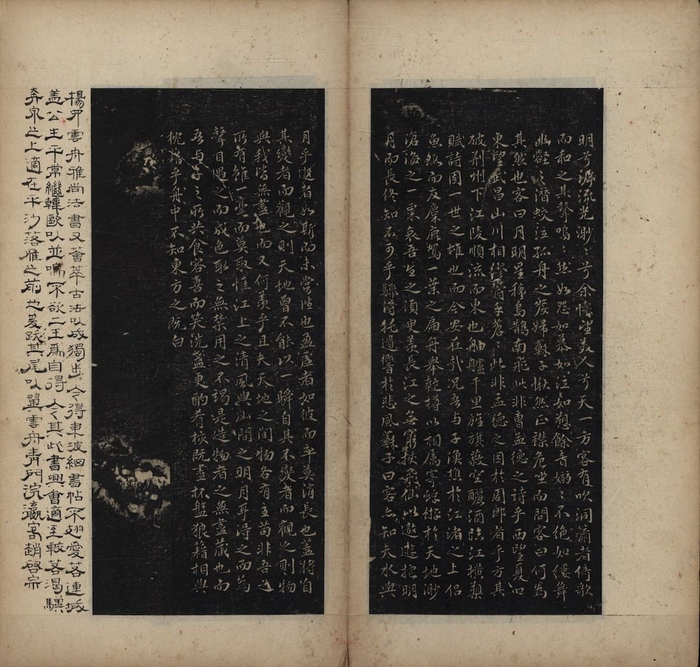 明兮泝流光渺渺兮余懷望美人兮天一方客有吹洞簫者倚歌
而和之其聲嗚嗚然如怨如慕如泣如訴餘音嫋嫋不絕如縷舞
幽壑之潛蛟泣孤舟之嫠婦蘇子愀然正襟危坐而問客曰何為
其然也客曰月明星稀烏鵲南飛此非曹孟德之詩乎西望夏口
東望武昌山川相繆鬱乎蒼蒼此非孟德之困於周郎者乎方其
破荊州下江陵順流而東也舳艫千里旌旗蔽空釃酒臨江橫槊
賦詩固一世之雄也而今安在哉況吾與子漁樵於江渚之上侶
魚鰕而友麋鹿駕一葉之扁舟舉匏樽以相屬寄蜉蝣於天地渺
滄海之一粟哀吾生之須臾羨長江之無窮挾飛仙以遨遊抱明
月而長終知不可乎驟得托遺響於悲風蘇子曰客亦知夫水與
月乎逝者如斯而未嘗往也盈虛者如彼而卒莫消長也蓋將自
其變者而觀之則天地曾不能以一瞬自其不變者而觀之則物
與我皆無盡也而又何羨乎且夫天地之間物各有主苟非吾之
所有雖一毫而莫取惟江上之清風與山間之明月耳得之而為
聲目遇之而成色取之無禁用之不竭是造物者之無盡藏也而
吾與子之所共食客喜而笑洗盞更酌肴核既盡杯盤狼藉相與
枕藉乎舟中不知東方之既白
雲舟雅尚法書又薈萃古法以成獨步今得東坡細書帖不翅愛若連城
蓋公生平常繼韓歐以並鳴不欲二王爲自得今其此書興會適至較若渴驥
奔泉之上適在平沙落雁之前也爰跋其尾以雲舟青門浣瀛客趙啓宗